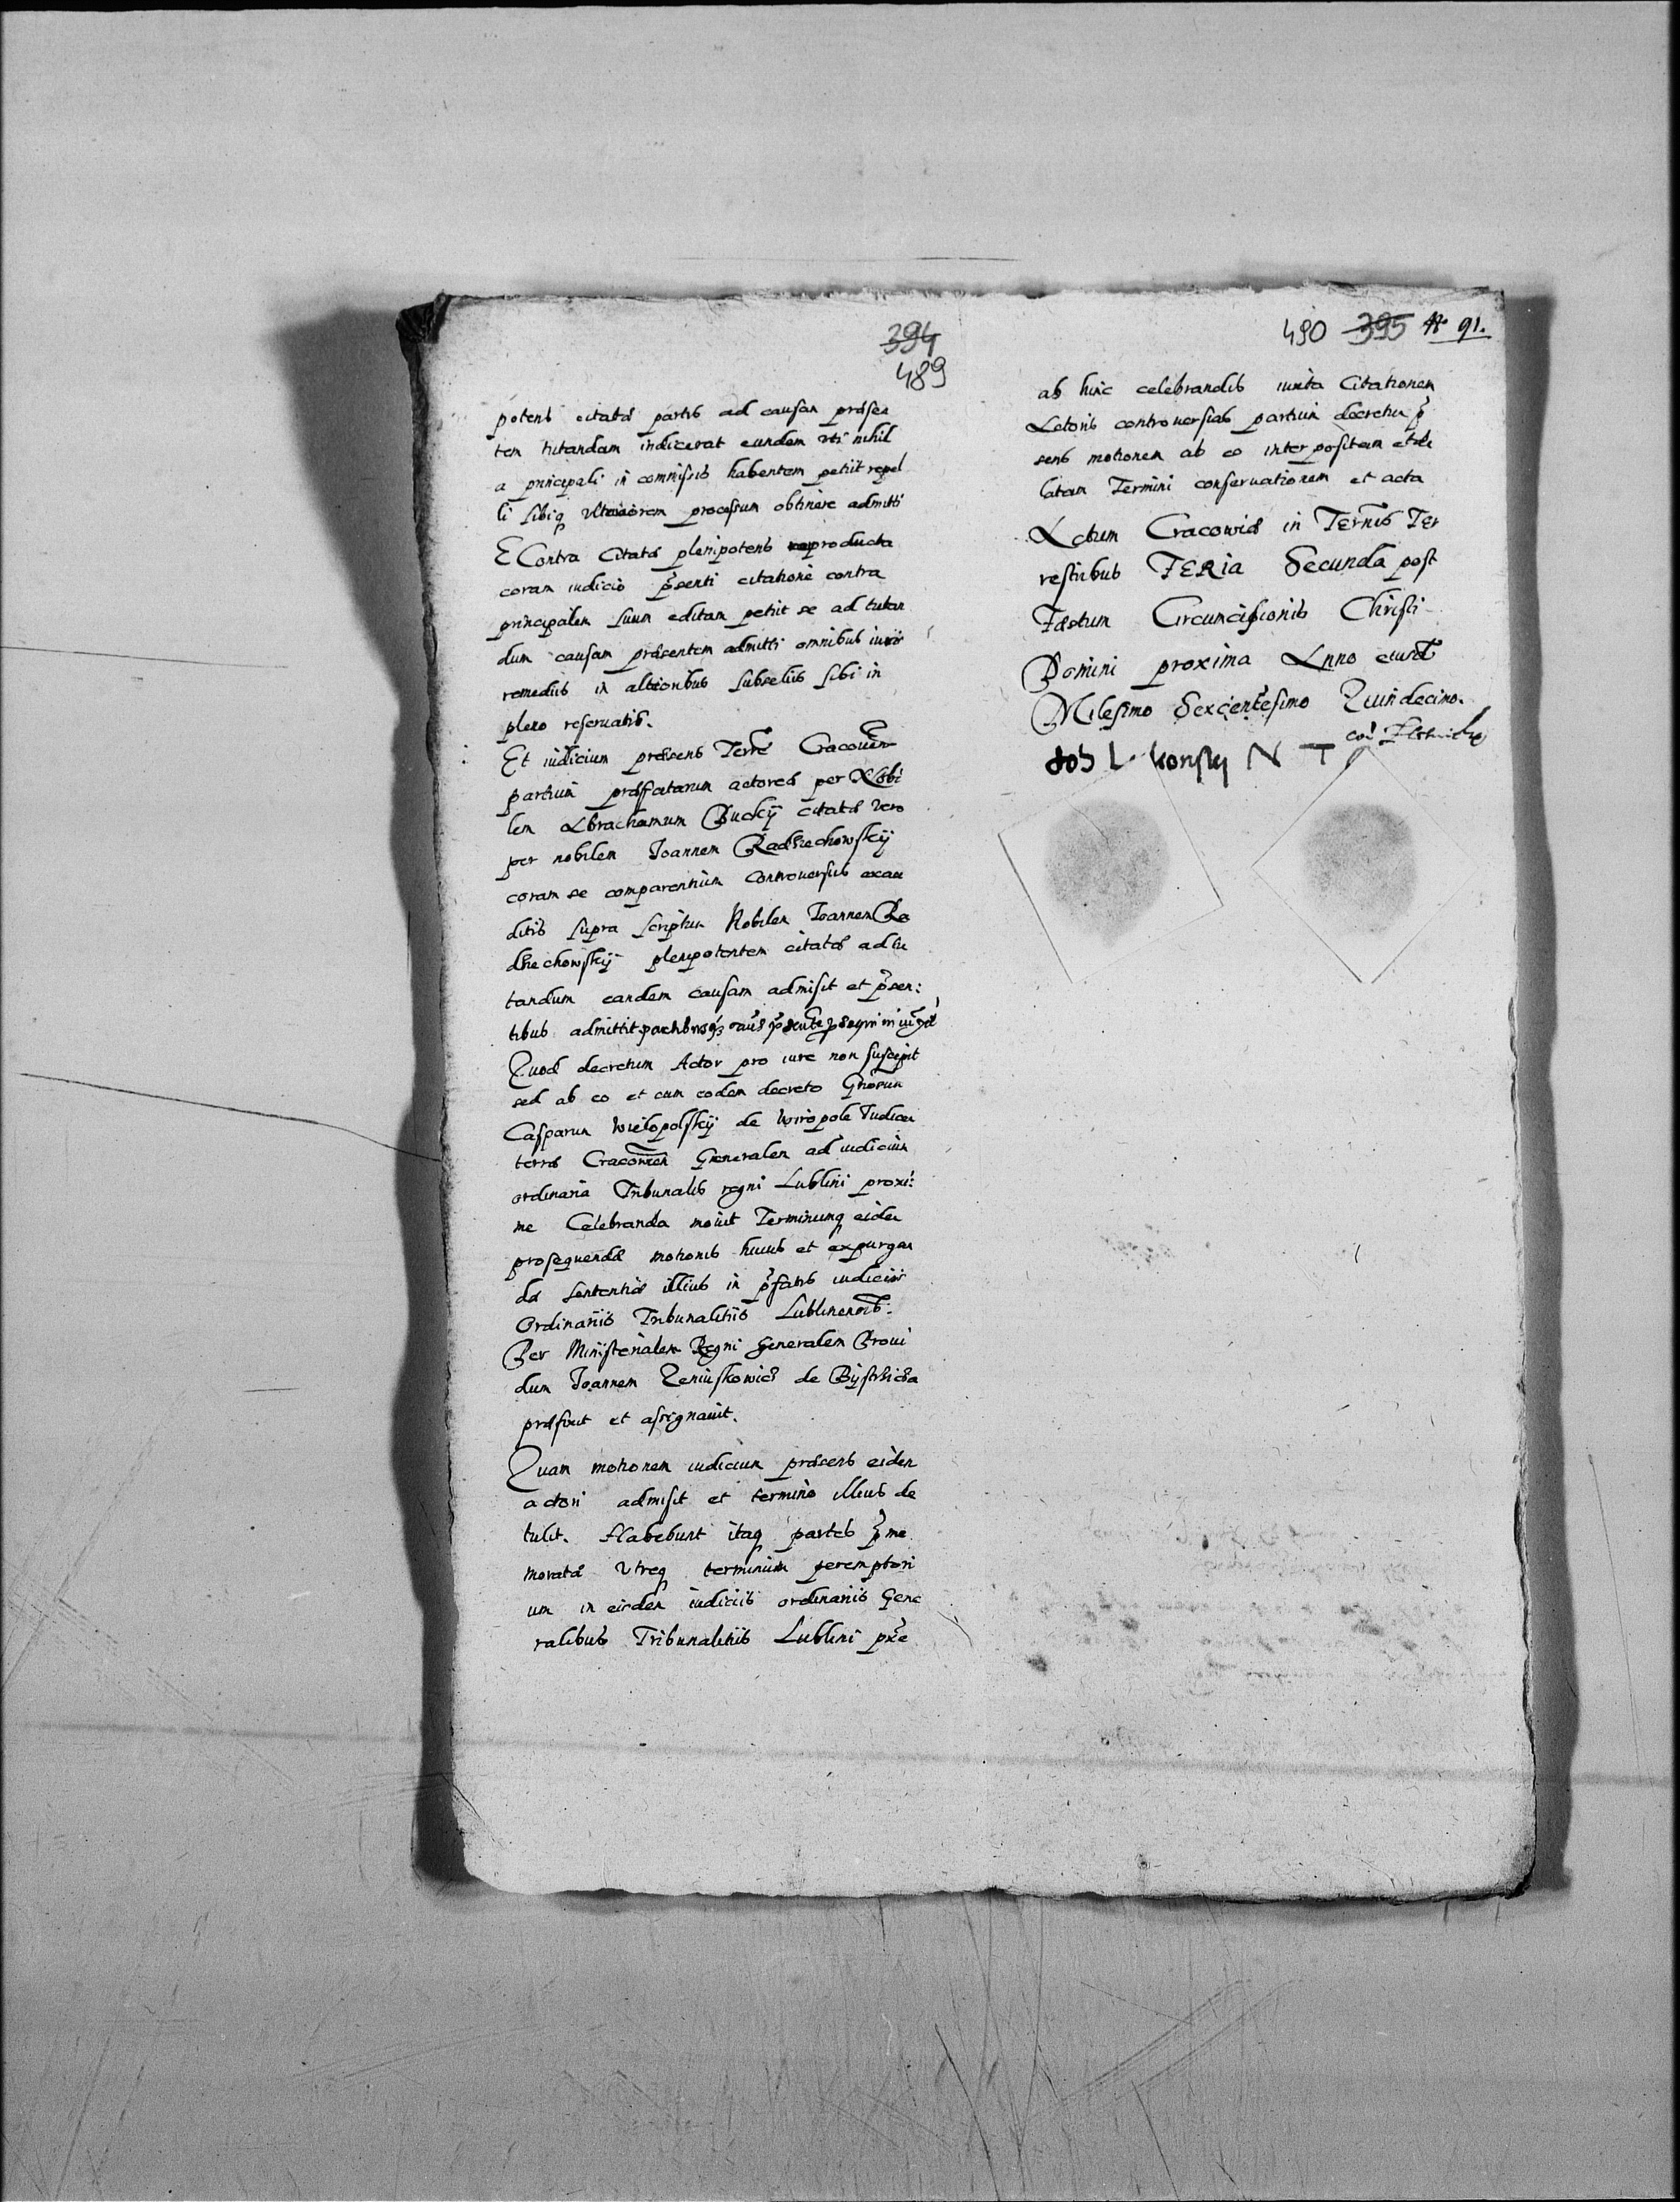 394
489
potens citatæ partis ad causam præsen
tem tutandam indicerat eundem uti nihil
a principali in commissis habentem petiit repel
li sibiq ulteriorem processum obtinere admitti
E Contra Citatæ plenipotens producta
coram iudicio p̃senti citatione contra
principalem suum editam petiit se ad tutan
dum causam præsentem admitti omnibus iuris
remediis in altioribus subseliis sibi in
pleno reservatis.
Et iudicium præsens Terræ Cracovien
partium præfatarum actoreæ per Nobi
lem Abrahamum Bucky citatæ vero
per nobilem Joannem Radziechowsky
coram se comparentium Controversiis exau
ditis supra scriptum Nobilem Joannem Ra
dziechowsky plenipotentem citatæ ad tu
tandum eandem causam admisit et p̃sen:
tibus admittit
Quod decretum Actor pro iure non suscepit
sed ab eo et cum eodem decreto Gñosum
Casparum Wielopolsky de Judicem
terræ Cracovien Generalem ad iudicia
ordinaria Tribunalis regni Lublini proxi:
me Celebranda movit Terminumq eidem
prosequendæ motionis huius et expurgan
dæ sententiæ illius in p̃fatis iudiciis
Ordinariis Tribunalitiis Lublinensib.
Per Ministerialem Regni Generalem Provi
dum Joannem de Bystrzicza
præfixit et assignavit.
Quam motionem iudicium præsens eidem
actori admisit et termino illius de
tulit. Habebunt itaq partes p̃me
moratæ Utreq terminum peremptori
um in eisdem iudiciis ordinariis Gene
ralibus Tribunalitiis Lublini p̃
490 395 91.
ab hinc celebrandis iuxta Citationem
Actoris controversias partium decretu p̃
sens motionem ab eo interpositam et de
latam Termini conservationem et acta
Actum Cracoviæ in Ternis Ter
restribus FERIA Secunda post
Festum Circumcisionis Christi
Domini proxima Anno eiusd
Milesimo Sexcentesimo Quindecimo.